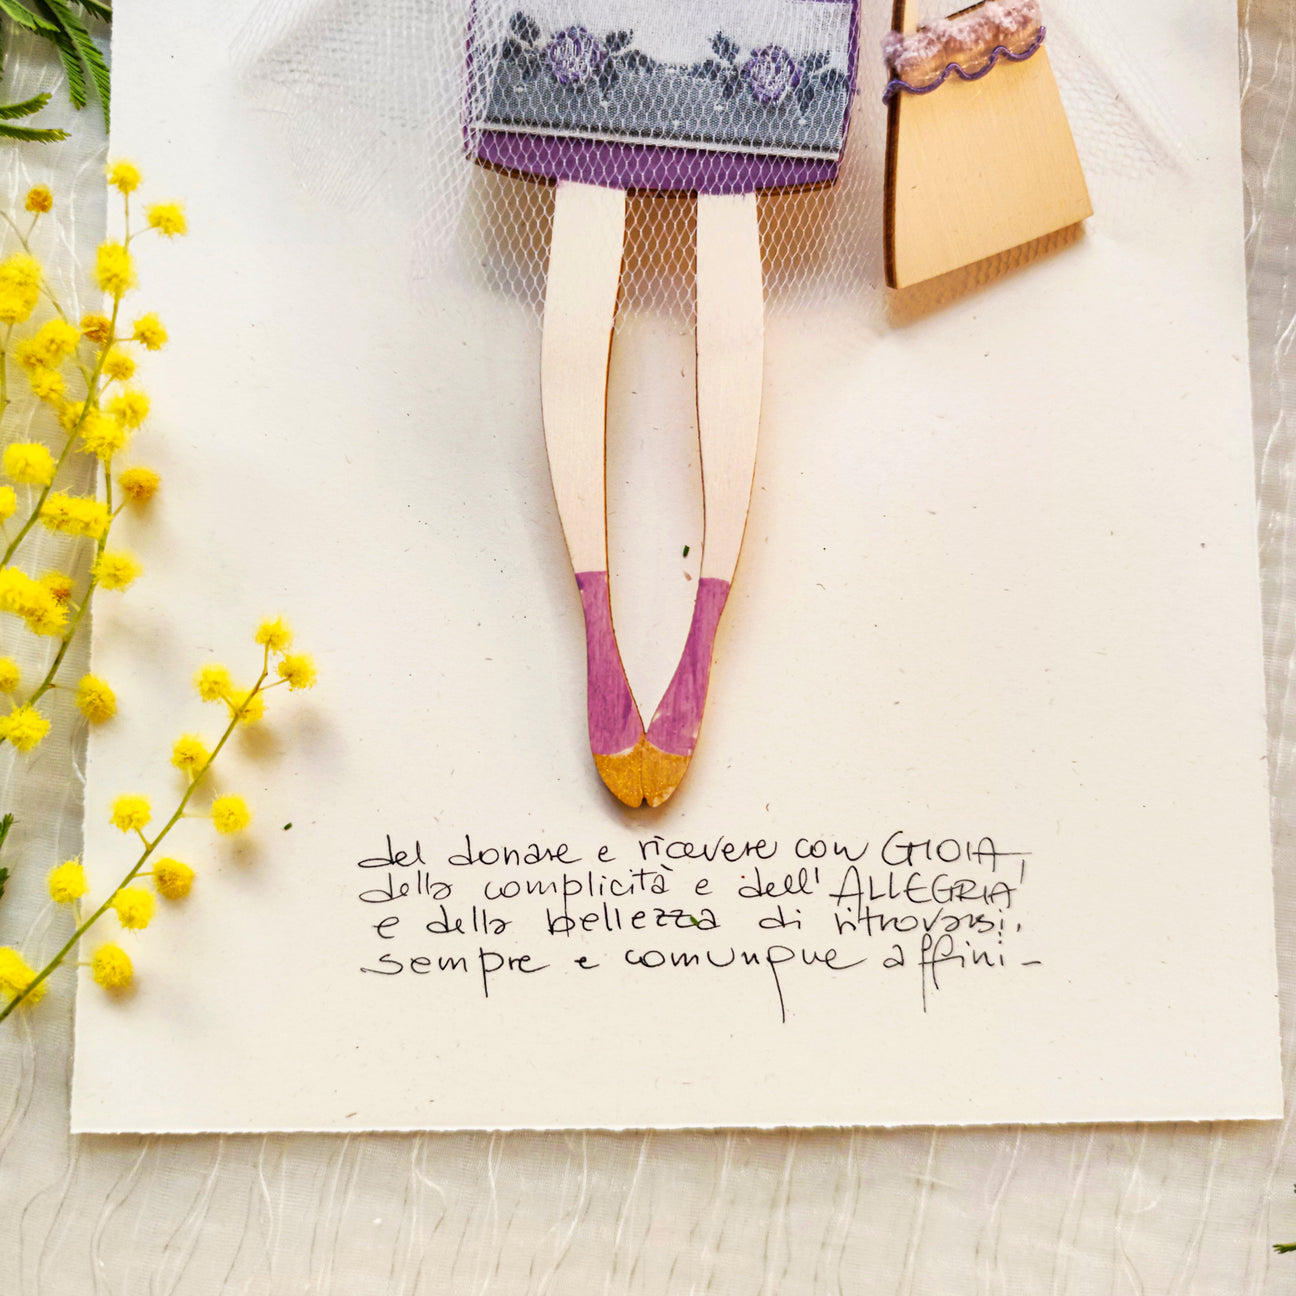 del donare e ricevere con GIOIA,
della complicità e dell'ALLEGRIA
e della bellezza di ritrovarsi,
sempre e comunque affini -